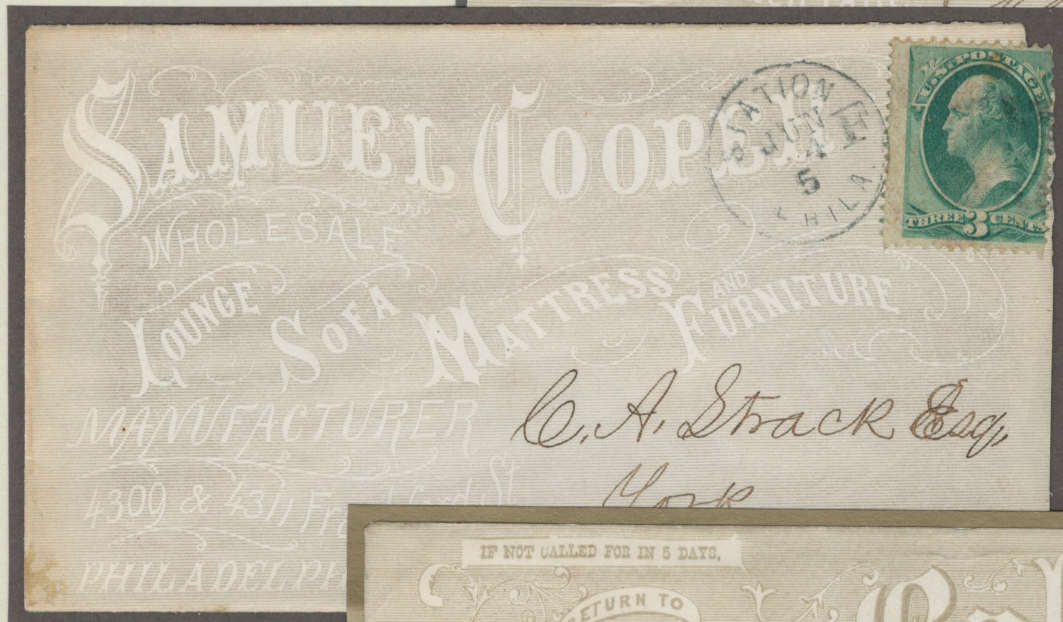 SAMUEL COOPER
WHOLESALE
LOUNGE SOFA MATTRESS AND FURNITURE
MANUFACTURER
4309 & 4311 St
PHILADELPH
STATION
JUN
5
PHILA
U.S. POSTAGE
THREE 3 CENTS
C. A. Strack Esq,
York
IF NOT CALLED FOR IN 5 DAYS,
RETURN TO